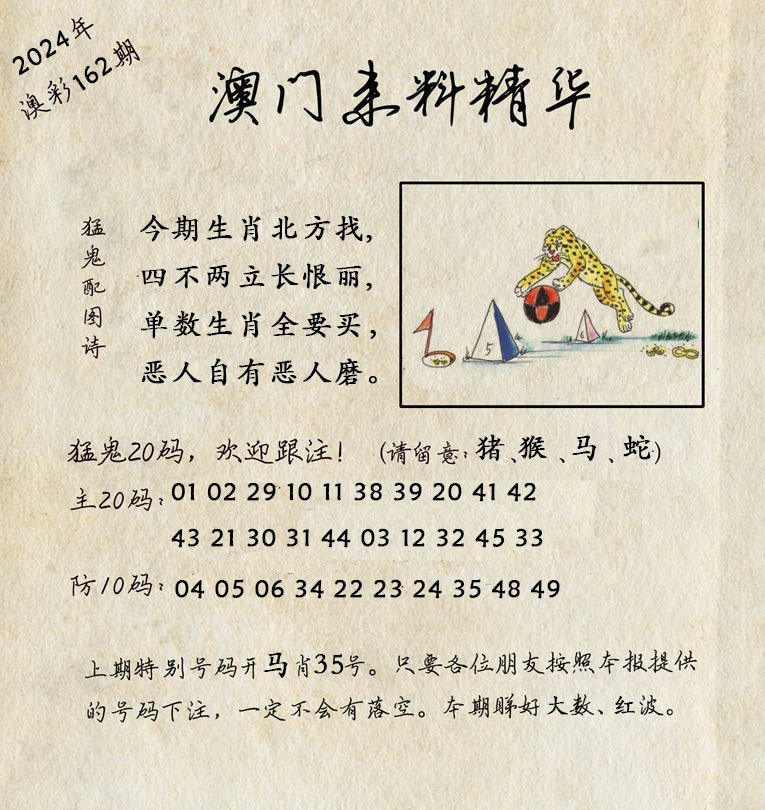 2024年
澳彩162期
澳门来料精华
猛鬼配图诗
今期生肖北方找，
四不两立长恨丽，
单数生肖全要买，
恶人自有恶人磨。
A
5
6
猛鬼20码，欢迎跟注！（请留意：猪、猴、马、蛇）
主20码：01 02 29 10 11 38 39 20 41 42
43 21 30 31 44 03 12 32 45 33
防10码：04 05 06 34 22 23 24 35 48 49
上期特别号码开马肖35号。只要各位朋友按照本报提供
的号码下注，一定不会有落空。本期睇好大数、红波。